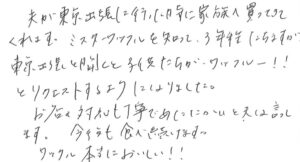 夫が東京出張に行った時に家族へ買ってきて
くれます。ミスターワッフルを知って、3年程になりますが
東京出張と聞くと子供たちが、ワッフルー!!
とリクエストするようになりました。
お店の対応も丁寧であったかいと夫は言って
ます。今年も食べ続けます。
ワッフル本当においしい!!